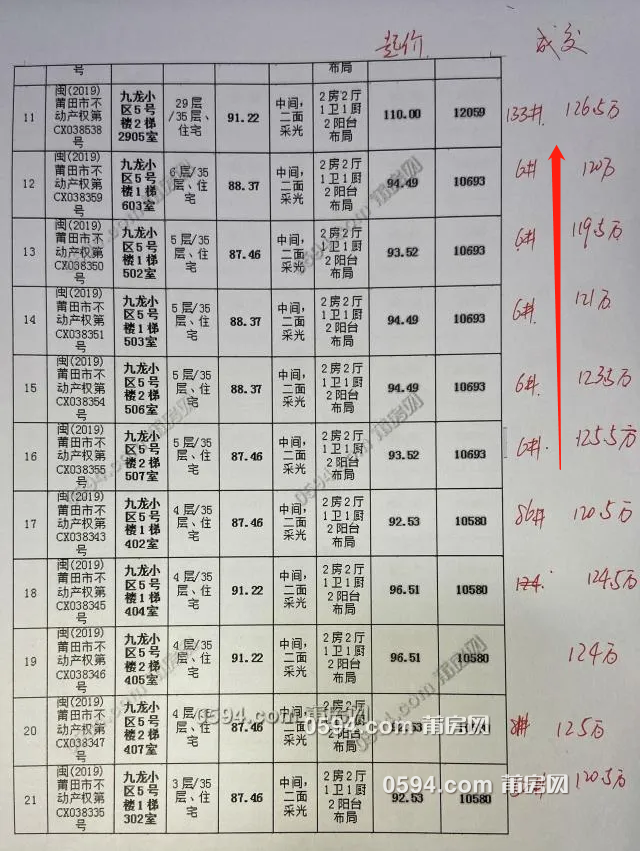 起价 成交
号 布局
11 闽(2019)莆田市不动产权第CX038538号 九龙小区5号楼2梯2905室 29层/35层、住宅 91.22 中间，二面采光 2房2厅1卫1厨2阳台布局 110.00 12059 133# 126.5万
12 闽(2019)莆田市不动产权第CX038359号 九龙小区5号楼1梯603室 6层/35层、住宅 88.37 中间，二面采光 2房2厅1卫1厨2阳台布局 94.49 10693 6# 120万
13 闽(2019)莆田市不动产权第CX038350号 九龙小区5号楼1梯502室 5层/35层、住宅 87.46 中间，二面采光 2房2厅1卫1厨2阳台布局 93.52 10693 6# 119.5万
14 闽(2019)莆田市不动产权第CX038351号 九龙小区5号楼1梯503室 5层/35层、住宅 88.37 中间，二面采光 2房2厅1卫1厨2阳台布局 94.49 10693 6# 121万
15 闽(2019)莆田市不动产权第CX038354号 九龙小区5号楼2梯506室 5层/35层、住宅 88.37 中间，二面采光 2房2厅1卫1厨2阳台布局 94.49 10693 6# 123.5万
16 闽(2019)莆田市不动产权第CX038355号 九龙小区5号楼2梯507室 5层/35层、住宅 87.46 中间，二面采光 2房2厅1卫1厨2阳台布局 93.52 10693 6# 125.5万
17 闽(2019)莆田市不动产权第CX038343号 九龙小区5号楼1梯402室 4层/35层、住宅 87.46 中间，二面采光 2房2厅1卫1厨2阳台布局 92.53 10580 86# 120.5万
18 闽(2019)莆田市不动产权第CX038345号 九龙小区5号楼1梯404室 4层/35层、住宅 91.22 中间，二面采光 2房2厅1卫1厨2阳台布局 96.51 10580 124.5万
19 闽(2019)莆田市不动产权第CX038346号 九龙小区5号楼2梯405室 4层/35层、住宅 91.22 中间，二面采光 2房2厅1卫1厨2阳台布局 96.51 10580 124万
20 闽(2019)莆田市不动产权第CX038347号 九龙小区5号楼2梯407室 4层/35层、住宅 87.46 中间，二面采光 2房2厅1卫1厨2阳台布局 92.53 125万
21 闽(2019)莆田市不动产权第CX038335号 九龙小区5号楼1梯302室 3层/35层、住宅 87.46 中间，二面采光 2房2厅1卫1厨2阳台布局 92.53 10580 120.5万
0594.com 莆房网
0594.com 莆房网
0594.com 莆房网